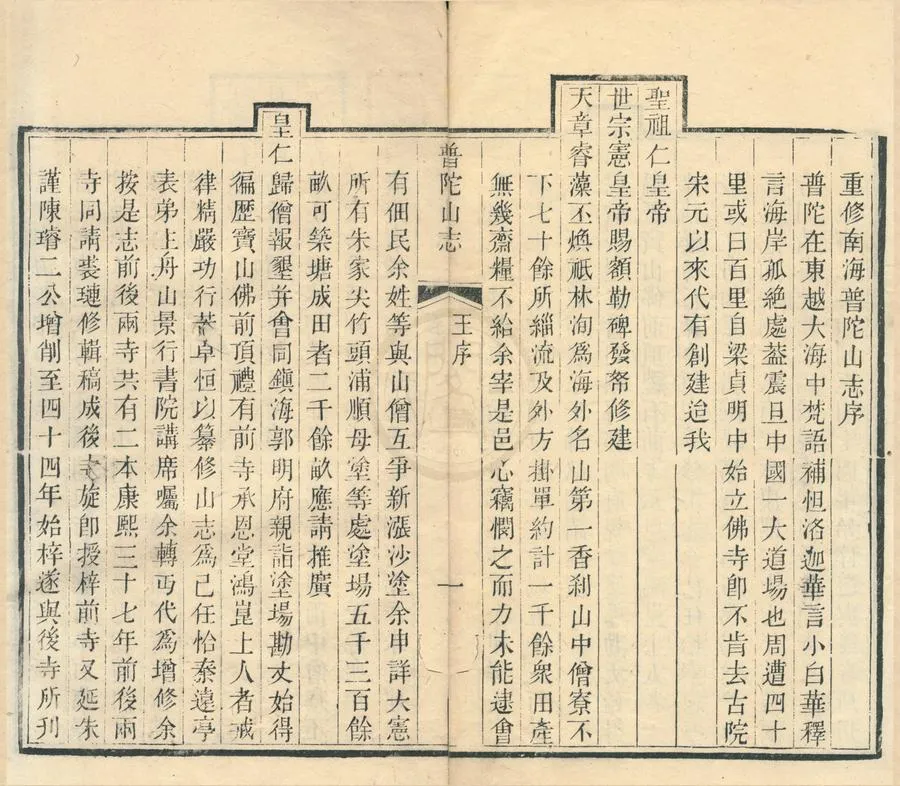 重修南海普陀山志序
普陀在東越大海中梵語補怛洛迦華言小白華釋
言海岸孤絕處葢震旦中國一大道場也周遭四十
里或曰百里自梁貞明中始立佛寺卽不肯去古院
宋元以來代有創建迨我
聖祖仁皇帝
世宗憲皇帝賜額勒碑發帑修建
天章睿藻丕煥祇林洵爲海外名山第一香刹山中僧寮不
下七十餘所緇流及外方掛單約計一千餘衆田產
無幾齋糧不給余宰是邑心竊憫之而力未能逮會
普陀山志
王序
一
有佃民余姓等與山僧互爭新漲沙塗余申詳大憲
所有朱家尖竹頭浦順母塗等處塗場五千三百餘
畝可築塘成田者二千餘畝應請推廣
皇仁
歸僧報墾并會同鎭海郭明府親詣塗場勘丈始得
徧歷寶山佛前頂禮有前寺承恩堂鴻崑上人者戒
律精嚴功行苦卓恒以纂修山志爲己任怡秦遠亭
表弟上舟山景行書院講席囑余轉丐代爲增修余
按是志前後兩寺共有二本康熙三十七年前後兩
寺同請裘璉修輯稿成後寺旋卽授梓前寺又延朱
謹陳璿二公增削至四十四年始梓遂與後寺所刊